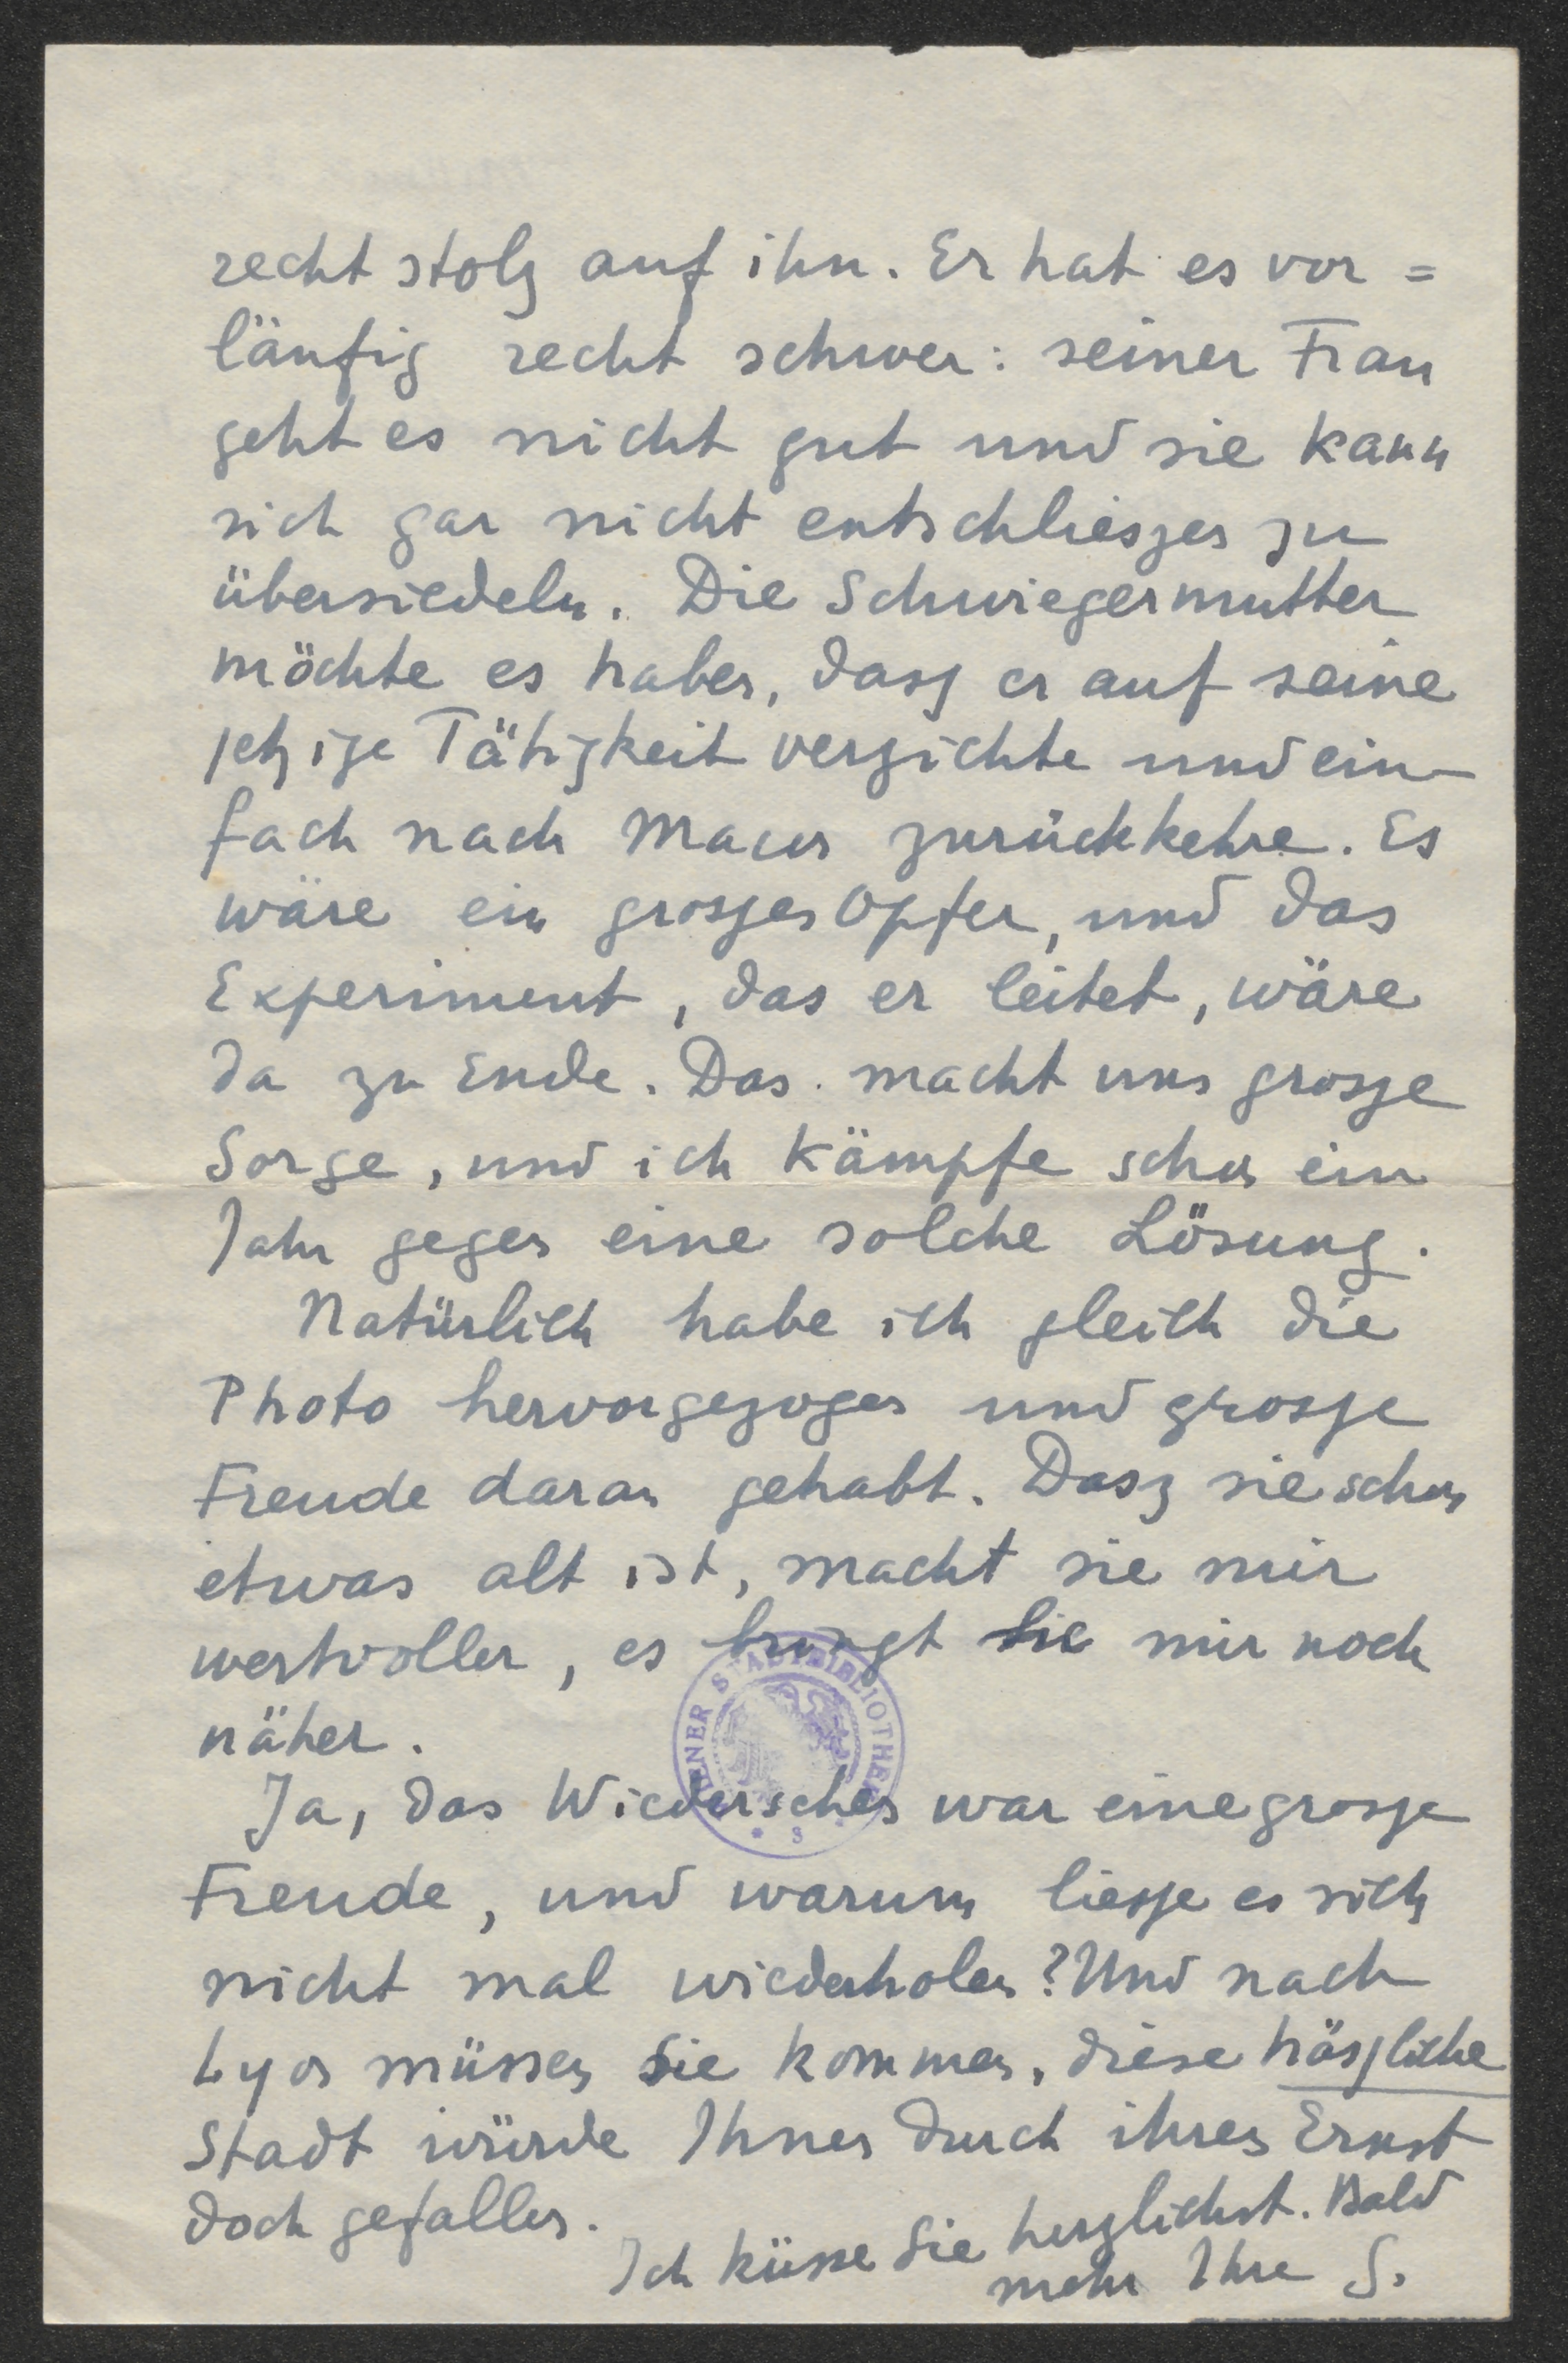 recht stolz auf ihn. Er hat es vor =
läufig recht schwer: seiner Frau
geht es nicht gut und sie kann
sich gar nicht entschlieszen zu
übersiedeln. Die Schwiegermutter
möchte es haben, dasz er auf seine
jetzige Tätigkeit verzichte und ein-
fach nach Macon zurückkehre. Es
wäre ein groszes Opfer, und das
Experiment, das er leitet, wäre
da zu Ende. Das macht uns grosze
Sorge, und ich kämpfe schon ein
Jahr gegen eine solche Lösung.
Natürlich habe ich gleich die
Photo hervorgezogen und grosze
Freude daran gehabt. Dasz sie schon
etwas alt ist, macht sie mir
wertvoller, es bringt Sie mir noch
näher.
WIENER STADTBIBLIOTHEK
* 3 *
Ja, das Wiedersehen war eine grosze
Freude, und warum liesze es sich
nicht mal wiederholen? Und nach
Lyon müssen Sie kommen, diese häszliche
Stadt würde Ihnen durch ihren Ernst
doch gefallen.
Ich küsse Sie herzlichst. Bald
mehr Ihre S.